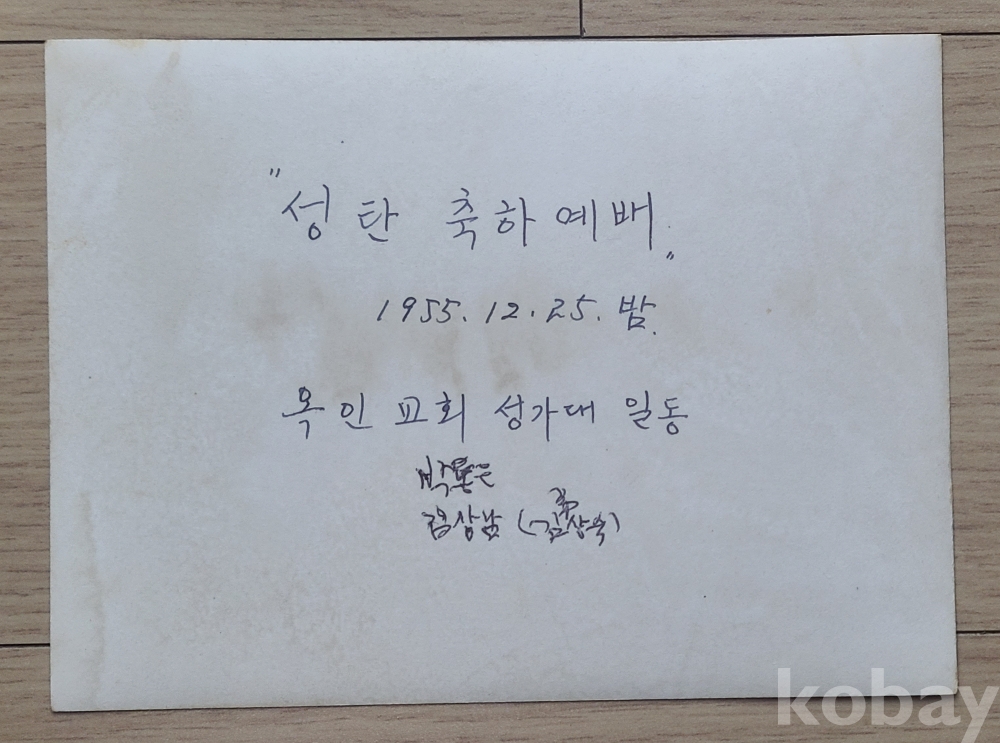 "성탄 축하예배"
1955. 12. 25. 밤.
옥인 교회 성가대 일동
김상남 (김상욱)
kobay